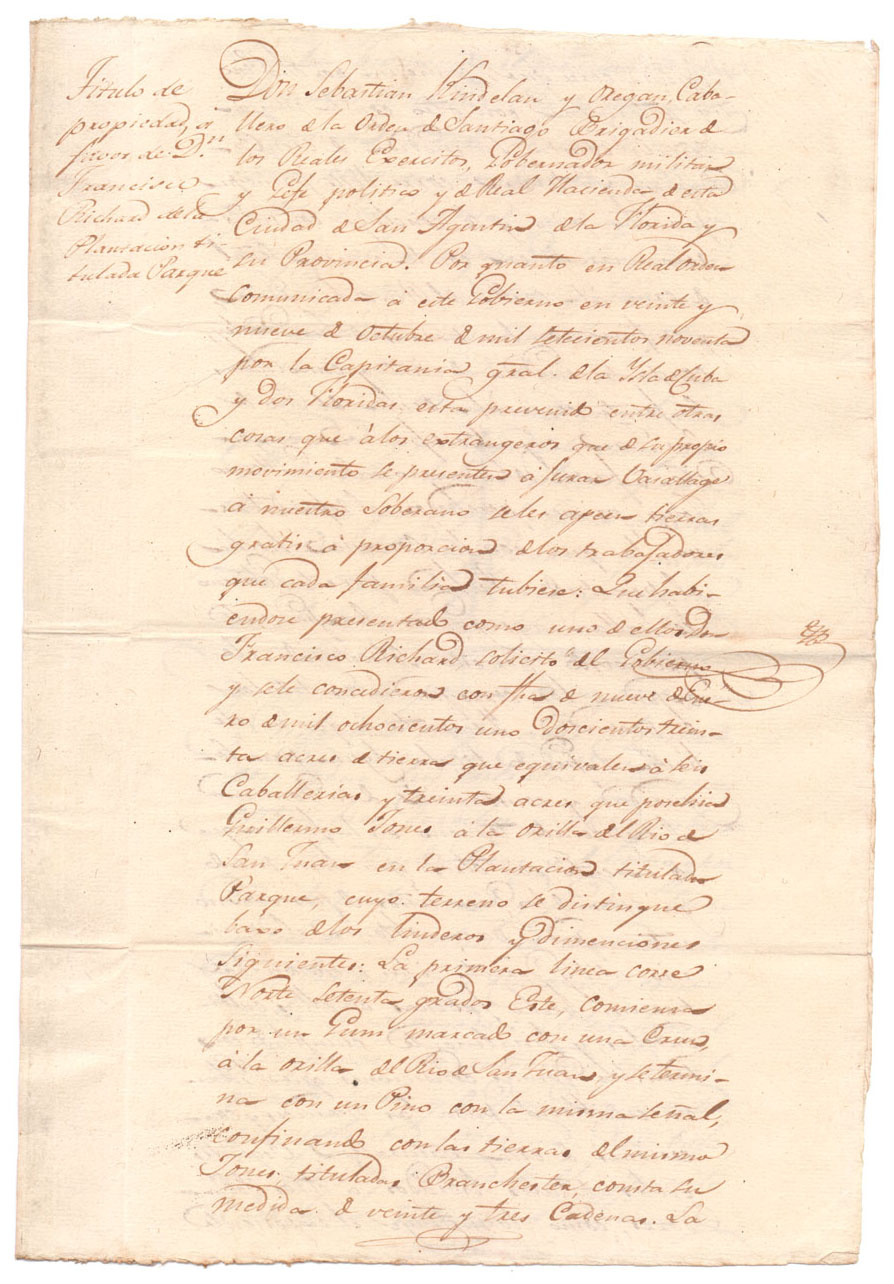 Titulo de
propiedad, a
favor de Dn
Francisco
Richard de la
Plantacion ti-
tulada Parque
Don Sebastian Kindelan y Oregan, Caba-
llero de la Orden de Santiago Brigadier de
los Reales Exercitos, Gobernador militar
y Gefe politico y de Real Hacienda de esta
Ciudad de San Agustin de la Florida y
su Provincia. Por quanto en Real Orden
comunicada á este Gobierno en veinte y
nueve de Octubre de mil setecientos noventa
por la Capitania gral. de la Ysla de Cuba
y dos Floridas esta prevenido entre otras
cosas que á los extrangeros que de su propio
movimiento se presenten á Jurar Vasallage
á nuestro Soberano se les apeen tierras
gratis á proporcion de los trabajadores
que cada familia tubiese: Que habi-
endose presentado como uno de ellos Dn
Francisco Richard solicitó del Gobierno
y se le concedieron con fha de nueve de Ene-
ro de mil ochocientos uno doscientos trein-
ta acres de tierra que equivalen á seis
Caballerias y treinta acres que posehia
Guillermo Jones á la orilla del Rio de
San Juan en la Plantacion titulada
Parque, cuyo terreno se distingue
baxo de los linderos y dimenciones
siguientes: La primera linea corre
Norte setenta grados Este, comienza
por un Gum marcado con una Cruz,
á la orilla del Rio de San Juan, y se termi-
na con un Pino con la misma señal,
confinando con las tierras del mismo
Jones, tituladas Pranchester, consta su
medida de veinte y tres Cadenas. La